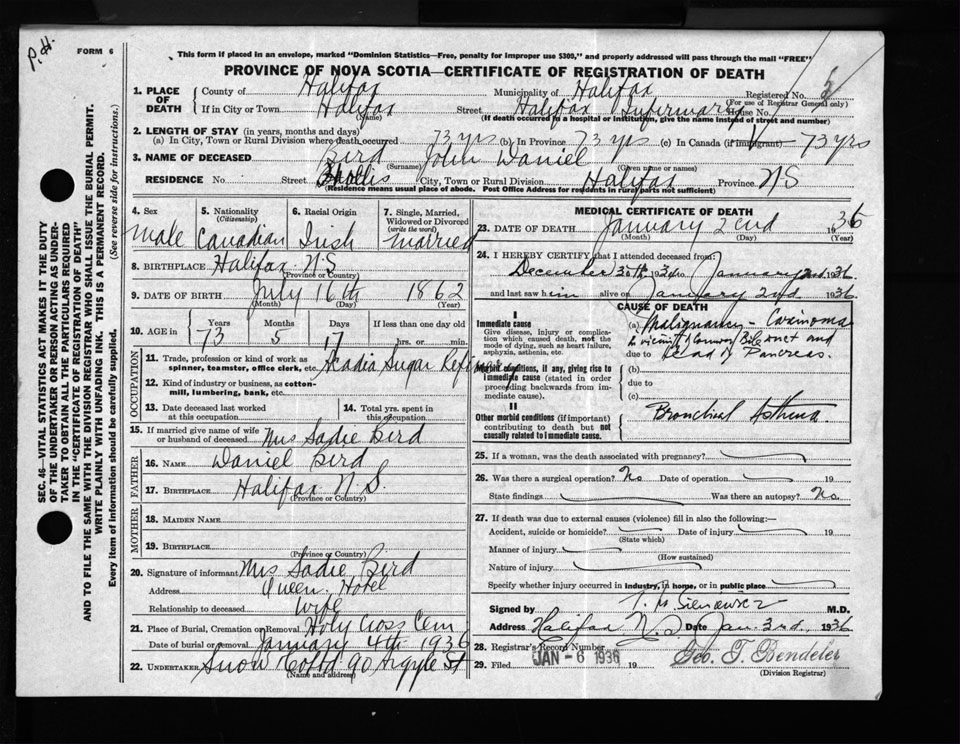 P.H.
FORM 6
This form if placed in an envelope, marked "Dominion Statistics—Free, penalty for improper use $300," and properly addressed will pass through the mail "FREE"
PROVINCE OF NOVA SCOTIA—CERTIFICATE OF REGISTRATION OF DEATH
1. PLACE OF DEATH County of Halifax Municipality of Halifax Registered No.
(For use of Registrar General only)
If in City or Town Halifax Street Halifax Infirmary House No.
(Name) (If death occurred in a hospital or institution, give the name instead of street and number)
2. LENGTH OF STAY (in years, months and days)
(a) In City, Town or Rural Division where death occurred 73 yrs (b) In Province 73 yrs (c) In Canada (if immigrant) 73 yrs
3. NAME OF DECEASED Bird John Daniel
(Surname) (Given name or names)
RESIDENCE No Street Hollis City, Town or Rural Division Halifax Province NS
(Residence means usual place of abode. Post Office Address for residents in rural parts not sufficient)
4. Sex Male
5. Nationality (Citizenship) Canadian
6. Racial Origin Irish
7. Single, Married, Widowed or Divorced (write the word) Married
8. BIRTHPLACE Halifax NS
(Province or Country)
9. DATE OF BIRTH July 16th 1862
(Month) (Day) (Year)
10. AGE in Years 73 Months 5 Days 17 If less than one day old hrs. or min.
OCCUPATION
11. Trade, profession or kind of work as spinner, teamster, office clerk, etc. Acadia Sugar Refinery
12. Kind of industry or business, as cotton-mill, lumbering, bank, etc.
13. Date deceased last worked at this occupation
14. Total yrs. spent in this occupation
15. If married give name of wife or husband of deceased Mrs Sadie Bird
FATHER
16. NAME Daniel Bird
17. BIRTHPLACE Halifax N.S.
(Province or Country)
MOTHER
18. MAIDEN NAME
19. BIRTHPLACE
(Province or Country)
20. Signature of informant Mrs Sadie Bird
Address Queen Hotel
Relationship to deceased Wife
21. Place of Burial, Cremation or Removal Holy Cross Cem
Date of burial or removal January 4th 1936
22. UNDERTAKER Snow Co Ltd 90 Argyle St
(Name and address)
MEDICAL CERTIFICATE OF DEATH
23. DATE OF DEATH January 2nd 1936
(Month) (Day) (Year)
24. I HEREBY CERTIFY that I attended deceased from
December 30th 1934 to January 2nd 1936
and last saw him alive on January 2nd 1936
CAUSE OF DEATH
I
Immediate cause
Give disease, injury or complication which caused death, not the mode of dying, such as heart failure, asphyxia, asthenia, etc.
(a) Malignancy - Carcinoma
in vicinity of Common Bile Duct and
due to Head of Pancreas.
Morbid conditions, if any, giving rise to immediate cause (stated in order proceeding backwards from immediate cause).
(b)
due to
(c)
II
Other morbid conditions (if important) contributing to death but not causally related to immediate cause.
Bronchial Asthma
25. If a woman, was the death associated with pregnancy?
26. Was there a surgical operation? No Date of operation 19
State findings Was there an autopsy? No
27. If death was due to external causes (violence) fill in also the following:—
Accident, suicide or homicide? Date of injury 19
(State which)
Manner of injury
(How sustained)
Nature of injury
Specify whether injury occurred in industry, in home, or in public place
Signed by T. M. Sieniewicz M.D.
Address Halifax N.S. Date Jan. 3rd, 1936
28. Registrar's Record Number
29. Filed JAN - 6 1936 19 Geo. T. Bendeler
(Division Registrar)
SEC. 46—VITAL STATISTICS ACT MAKES IT THE DUTY
OF THE UNDERTAKER OR PERSON ACTING AS UNDER-
TAKER TO OBTAIN ALL THE PARTICULARS REQUIRED
IN THE "CERTIFICATE OF REGISTRATION OF DEATH"
AND TO FILE THE SAME WITH THE DIVISION REGISTRAR WHO SHALL ISSUE THE BURIAL PERMIT.
WRITE PLAINLY WITH UNFADING INK. THIS IS A PERMANENT RECORD.
Every item of information should be carefully supplied. (See reverse side for instructions.)